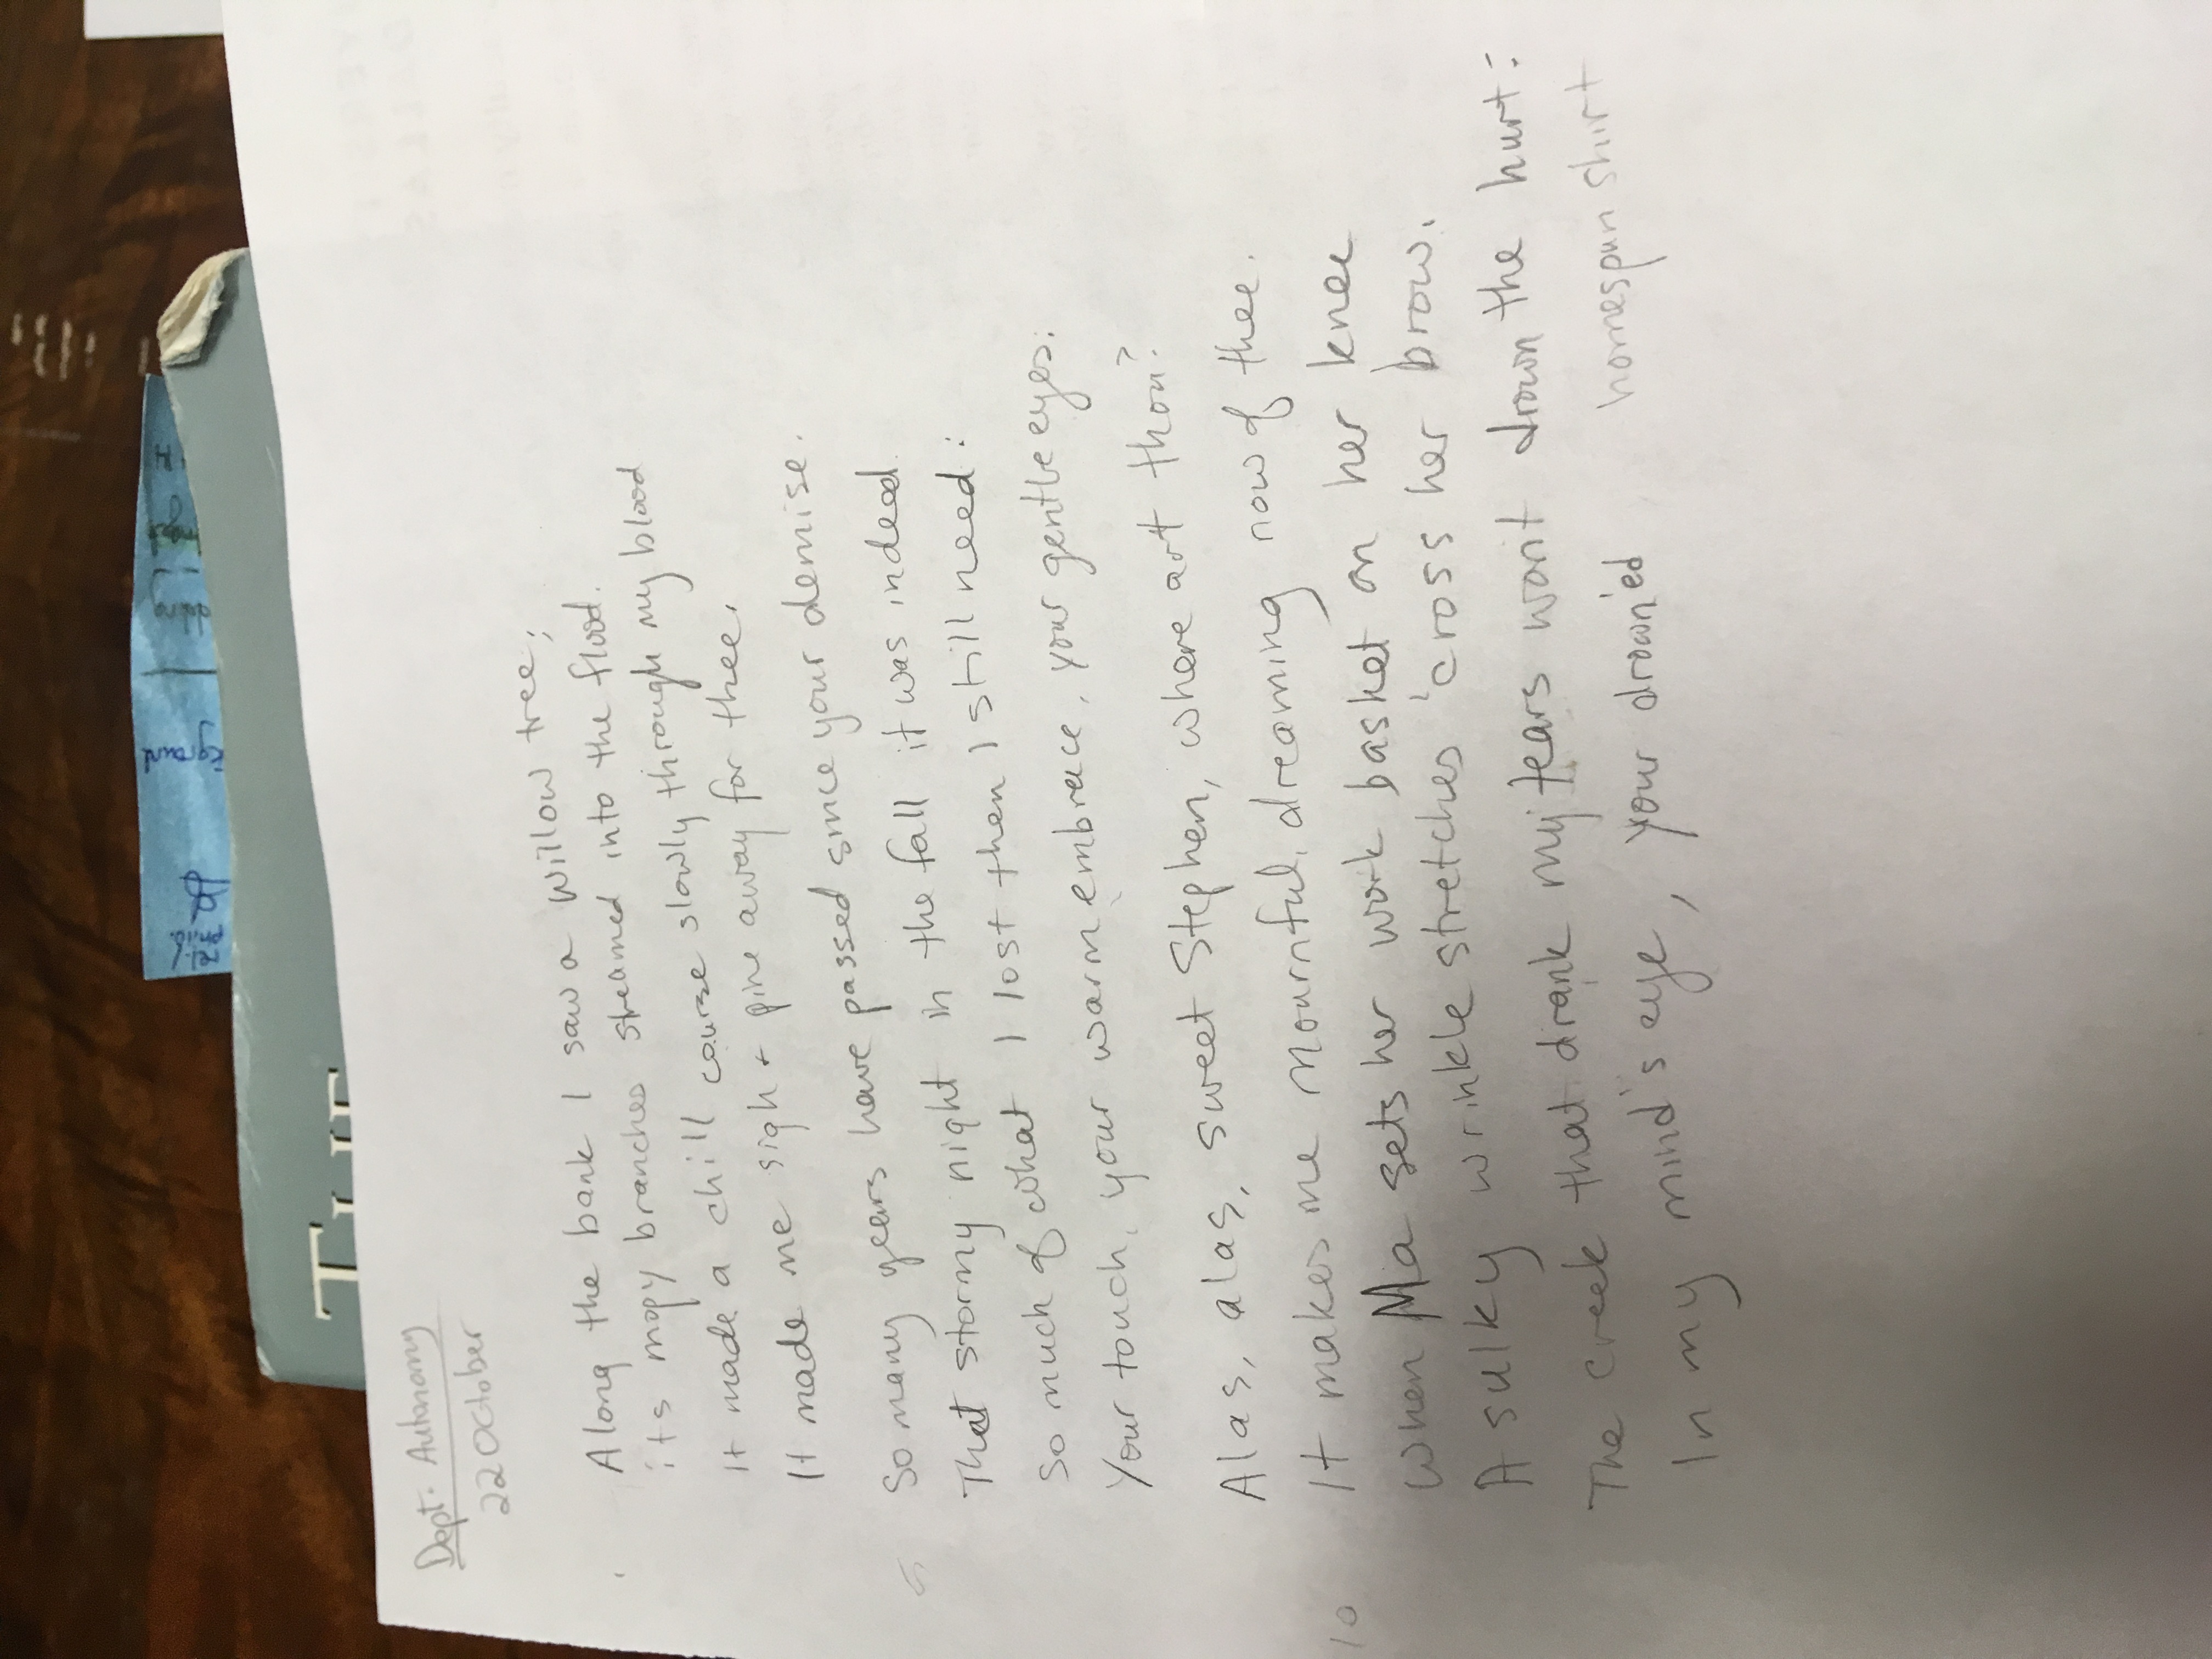 rel./
phild.
kground
THE
Dept. Autonomy
22 October
Along the bank I saw a willow tree;
its mopy branches streamed into the flood.
It made a chill course slowly through my blood
It made me sigh + pine away for thee.
5 So many years have passed since your demise.
That stormy night in the fall it was indeed.
So much of what I lost then I still need:
Your touch, your warm embrace, your gentle eyes.
Alas, alas, sweet Stephen, where art thou?
10 It makes me mournful, dreaming now of thee.
When Ma sets her work basket on her knee
A sulky wrinkle stretches 'cross her brow.
The creek that drank my tears won't drown the hurt:
In my mind's eye, your drown'ed homespun shirt